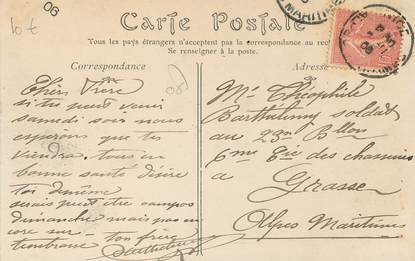 Carte Postale
Tous les pays étrangers n'acceptent pas la correspondance au
Se renseigner à la poste.
Correspondance
Adresse
Cher Frère
si tu peut venir
samedi soir nous
esperons que tu
viendra. tous en
bonne santé désire
toi
serais peut etre campos
dimanche mais pas en
core sur
ton frère
Barthélemy
Mr Théophile
Barthélemy soldat
au 23me Bllon
6me Cie des chasseurs
a
Grasse
Alpes Maritimes